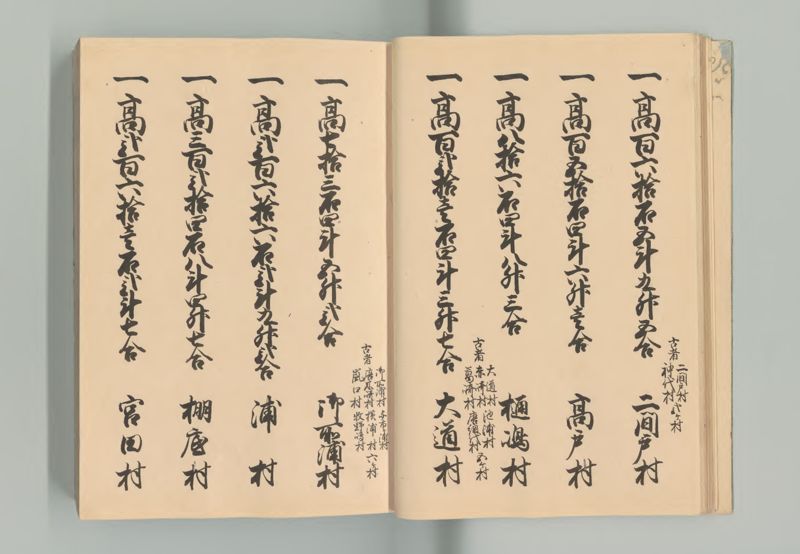 一高百六拾石五斗九升五合
古者 二間戸村 弐ケ村
神代村
二間戸村
一高百五拾石四斗六升壱合
高戸村
一高八拾六石四斗八升三合
樋嶋村
一高百弐拾壱石四斗三升七合
古者
大道村 池浦村
葛済村 五ケ村
大道村
一高七拾三石四斗五升弐合
古者
御所浦村
横浦村 六ケ村
嵐口村 牧野嶋村
御所浦村
一高弐百六拾六石弐斗九升弐合
浦村
一高三百弐拾四石八斗四升七合
棚底村
一高弐百六拾壱石弐斗七合
宮田村